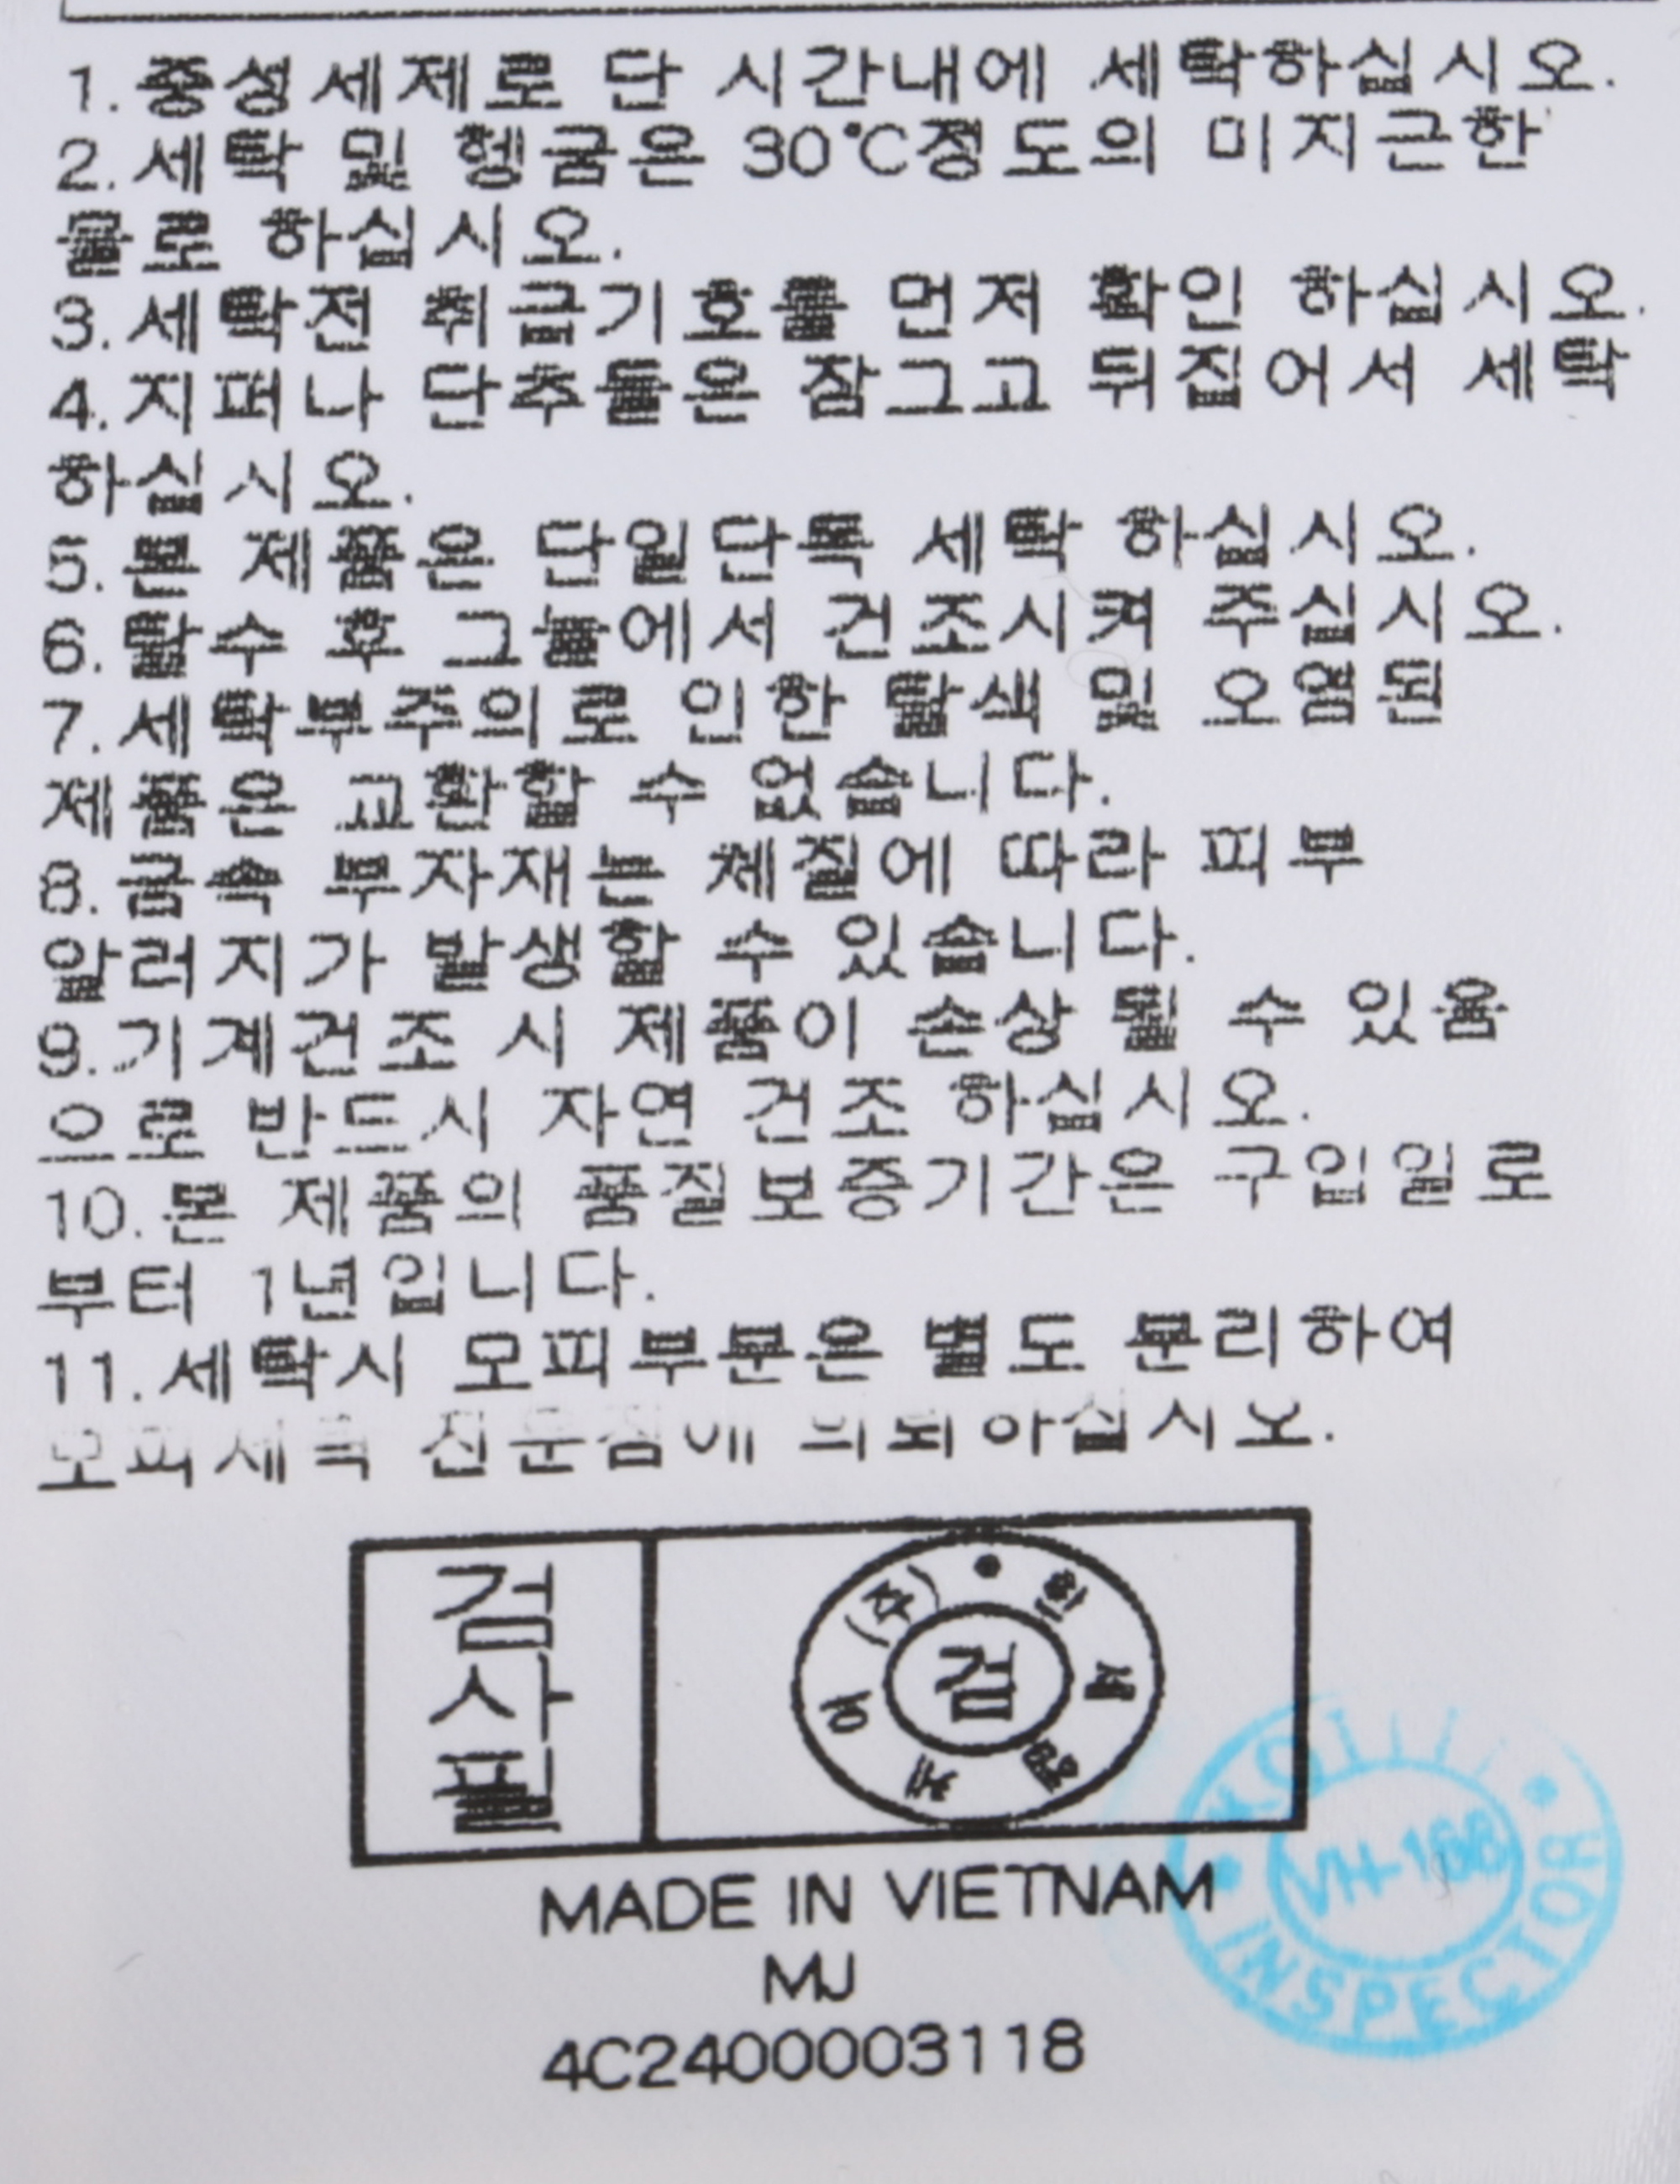 1.중성세제로 단 시간내에 세탁하십시오.
2.세탁 및 헹굼은 30°C정도의 미지근한
물로 하십시오.
3.세탁전 취급기호를 먼저 확인 하십시오.
4.지퍼나 단추들은 잠그고 뒤집어서 세탁
하십시오.
5.본 제품은 단일단독 세탁 하십시오.
6.탈수 후 그늘에서 건조시켜 주십시오.
7.세탁부주의로 인한 탈색 및 오염된
제품은 교환할 수 없습니다.
8.금속 부자재는 체질에 따라 피부
알러지가 발생할 수 있습니다.
9.기계건조 시 제품이 손상 될 수 있음
으로 반드시 자연 건조 하십시오.
10.본 제품의 품질보증기간은 구입일로
부터 1년입니다.
11.세탁시 모피부분은 별도 분리하여
모피세탁 전문점에 의뢰 하십시오.
검사필
(주)한세엠케이
검
MADE IN VIETNAM
MJ
4C2400003118
INSPECTOR